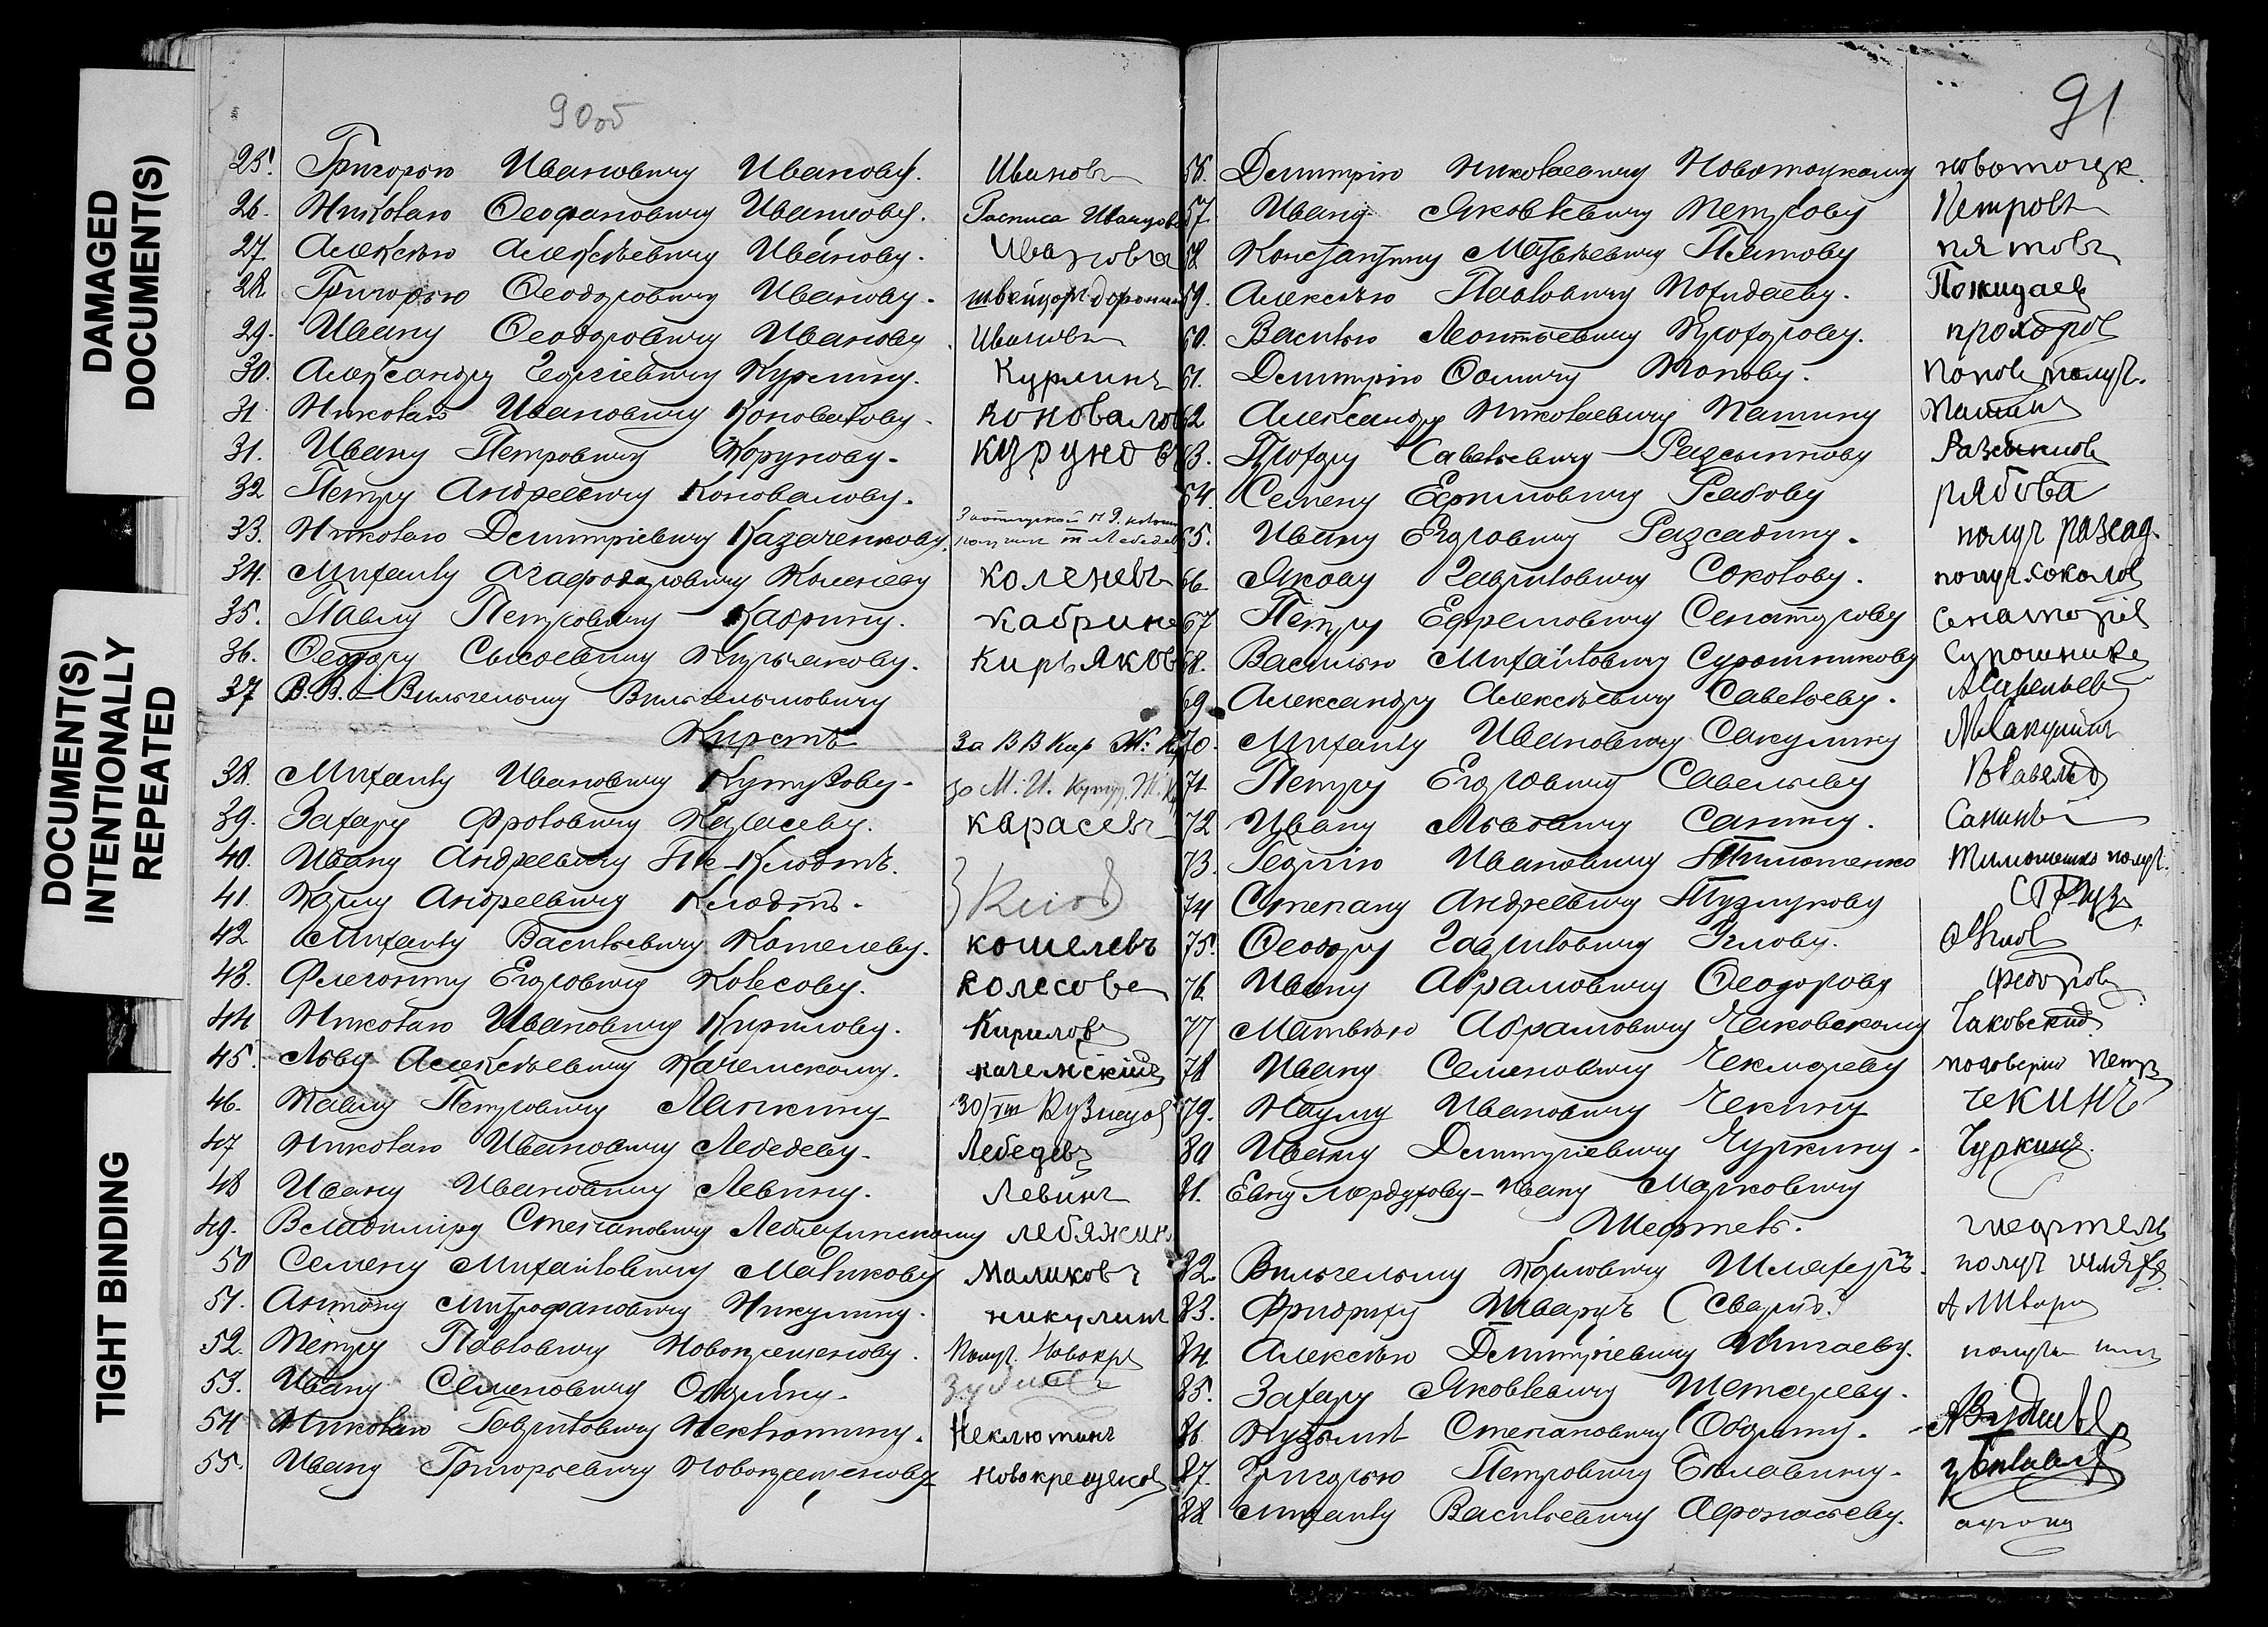 DAMAGED
DOCUMENT(S)
DOCUMENT(S)
INTENTIONALLY
REPEATED
TIGHT BINDING
90об
25. Григорію Ивановичу Иванову. Ивановъ
26. Николаю Ѳеофановичу Иванову.
27 Алексѣю Алексѣевичу Иванову. Иванова
28. Григорію Ѳеодоровичу Иванову. швейцар
29. Ивану Ѳеодоровичу Иванову. Ивановъ
30. Александру Георгіевичу Курлину. Курлинъ
31 Николаю Ивановичу Коновалову. Коновалов
31. Ивану Петровичу Корунову. Курунов
32 Петру Андреевичу Коновалову.
33. Николаю Дмитріевичу Казаченкову.
34. Михаилу Агафодоровичу Коленеву Коленевъ
35. Павлу Петровичу Кабрину. Кабрин
36. Ѳеодору Сысоевичу Кирьякову. Кирьяков
37 В.В. Вильгельму Вильгельмовичу
Кирстъ За В В Кир
38. Михаилу Ивановичу Кутузову. за М. И. Кутуз.
39. Захару Фроловичу Карасеву. Карасевъ
40. Ивану Андреевичу Клодтъ.
41. Карлу Андреевичу Клодтъ. Клод
42 Михаилу Васильевичу Кошелеву. Кошелевъ
43. Флегонту Егоровичу Колесову. Колесовъ
44 Николаю Ивановичу Кирилову. Кирилов
45. Льву Алексѣевичу Качемскому. Качемскій
46. Павлу Петровичу Лапкину Кузнецов
47 Николаю Ивановичу Лебедеву. Лебедевъ
48 Ивану Ивановичу Левину. Левинъ
49. Владиміру Степановичу Лебяжинскому Лебяжин
50 Семену Михайловичу Маликову Маликовъ
51. Антону Митрофановичу Никулину. Никулинъ
52. Петру Павловичу Новокрещенову. Получ. Новокр
53. Ивану Семеновичу
54 Николаю Гавриловичу Неклютину. Неклютинъ
55. Ивану Григорьевичу Новокрещенову Новокрещенов
91
56. Дмитрію Николаевичу Новотоцкому Новотоцк.
57. Ивану Яковлевичу Петрову Петровъ
58. Константину Матвѣевичу Пятову Пятовъ
59. Алексѣю Павловичу Пожидаеву. Пожидаев
60. Василію Леонтьевичу Прохорову. Прохоров
61. Дмитрію Ѳомичу Попову. Попов получ.
62 Александру Николаевичу Пашину Пашинъ
63. Прохору Савельевичу Разсыпнову
64. Семену Ефимовичу Рябову Рябова
65. Ивану Егоровичу Разсадину. получ Разсад.
66 Якову Гавриловичу Соколову. получ. Соколов
67 Петру Ефремовичу Сенаторову Сенаторов
68. Василію Михайловичу Сурошникову Сурошник
69 Александру Алексѣевичу Савельеву. А Савельев
70. Михаилу Ивановичу Сакулину М Сакулинъ
71 Петру Егоровичу Савельеву
72 Ивану Львовичу Санину. Санинъ
73. Георгію Ивановичу Тимошенко Тимошенко получ.
74 Степану Андреевичу Тузлукову
75. Ѳеодору Гавриловичу Углову.
76 Ивану Абрамовичу Ѳеодорову Федоров
77 Матвѣю Абрамовичу Чаковскому Чаковский
78 Ивану Семеновичу Чекмареву по доверію Петр
79. Науму Ивановичу Чекину Чекинъ
80 Ивану Дмитріевичу Чуркину. Чуркинъ
81. Ивану Марковичу
Шефтель. Шефтель
82. Вильгельму Карловичу получ
83. Фридриху Шварцъ А Шварц
84. Алексѣю Дмитріевичу получ
85. Захару Яковлевичу
86 Кузьмѣ Степановичу
87. Григорію Петровичу
88 Михаилу Васильевичу Афонасьеву. афона